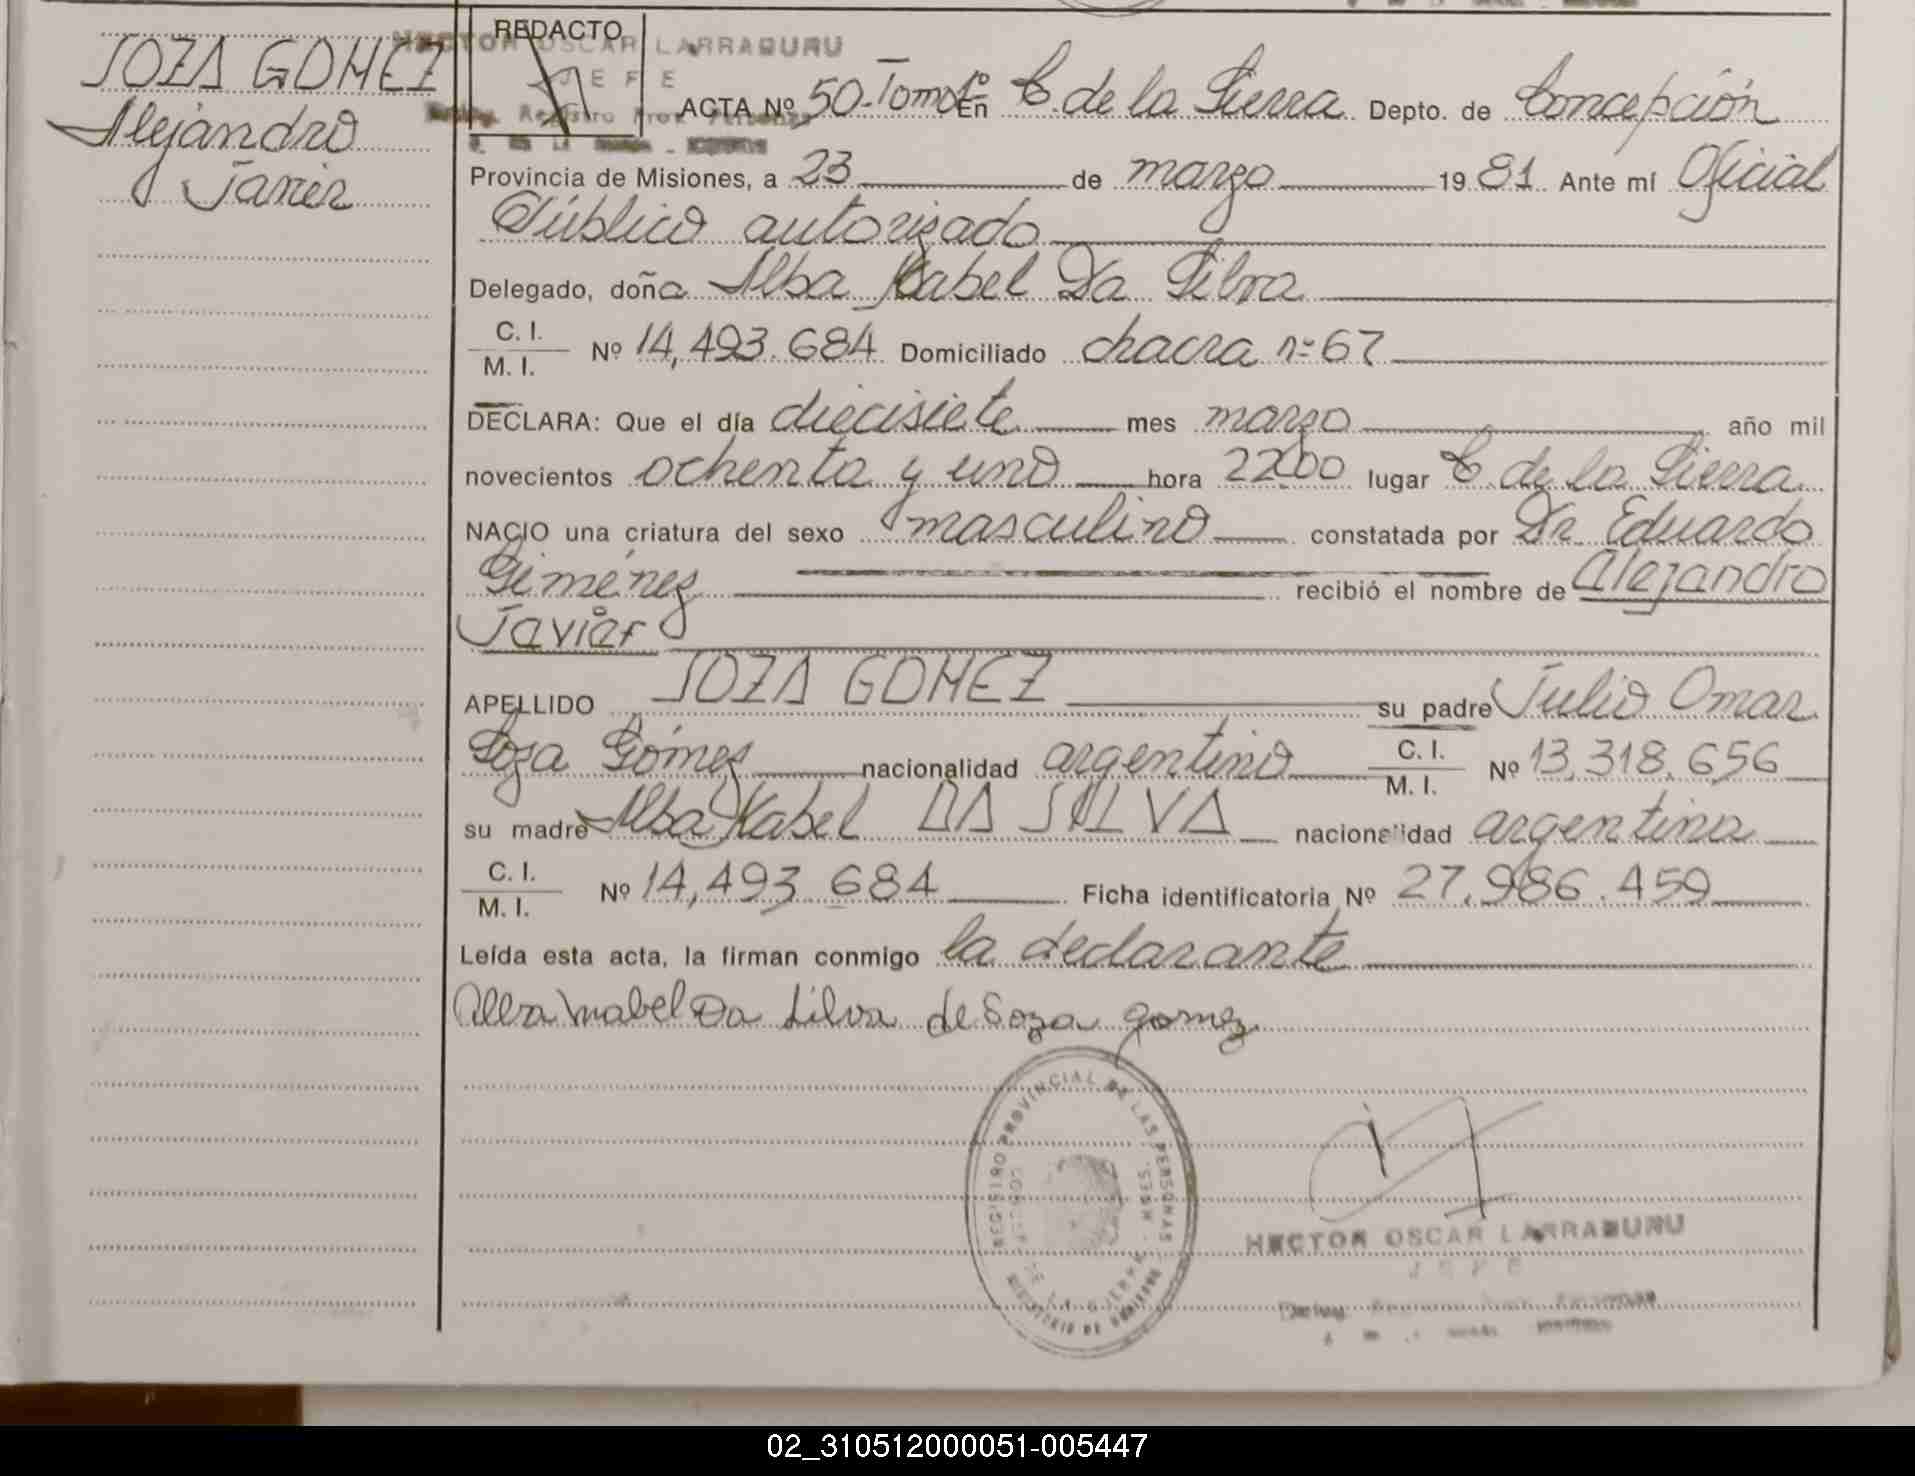 SOZA GOMEZ
Alejandro
Javier
REDACTO
HECTOR OSCAR LARRABURU
JEFE
ACTA Nº 50-Tomo 1º En C. de la Sierra Depto. de Concepción
Provincia de Misiones, a 23 de marzo 1981 Ante mí Oficial
Público autorizado
Delegado, doña Alba Mabel Da Silva
C. I.
M. I. Nº 14,493.684 Domiciliado chacra nº 67
DECLARA: Que el día diecisiete mes marzo año mil
novecientos ochenta y uno hora 22,00 lugar C. de la Sierra
NACIO una criatura del sexo masculino constatada por Dr. Eduardo
Giménez recibió el nombre de Alejandro
Javier
APELLIDO SOZA GOMEZ su padre Julio Omar
Soza Gómez nacionalidad argentino C. I. M. I. Nº 13.318.656
su madre Alba Mabel DA SILVA nacionalidad argentina
C. I.
M. I. Nº 14,493.684 Ficha identificatoria Nº 27.986.459
Leída esta acta, la firman conmigo la declarante
Alba Mabel Da Silva de Soza gomez
REGISTRO PROVINCIAL DE LAS PERSONAS
MINISTERIO DE GOBIERNO
HECTOR OSCAR LARRABURU
JEFE
02_310512000051-005447